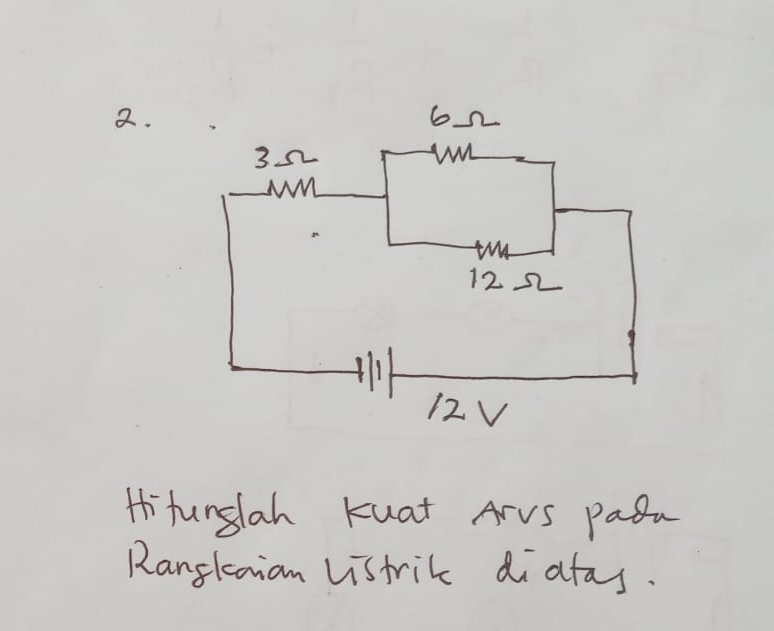 2.
6 Ω
3 Ω
12 Ω
12 V
Hitunglah kuat Arus pada
Rangkaian Listrik diatas.